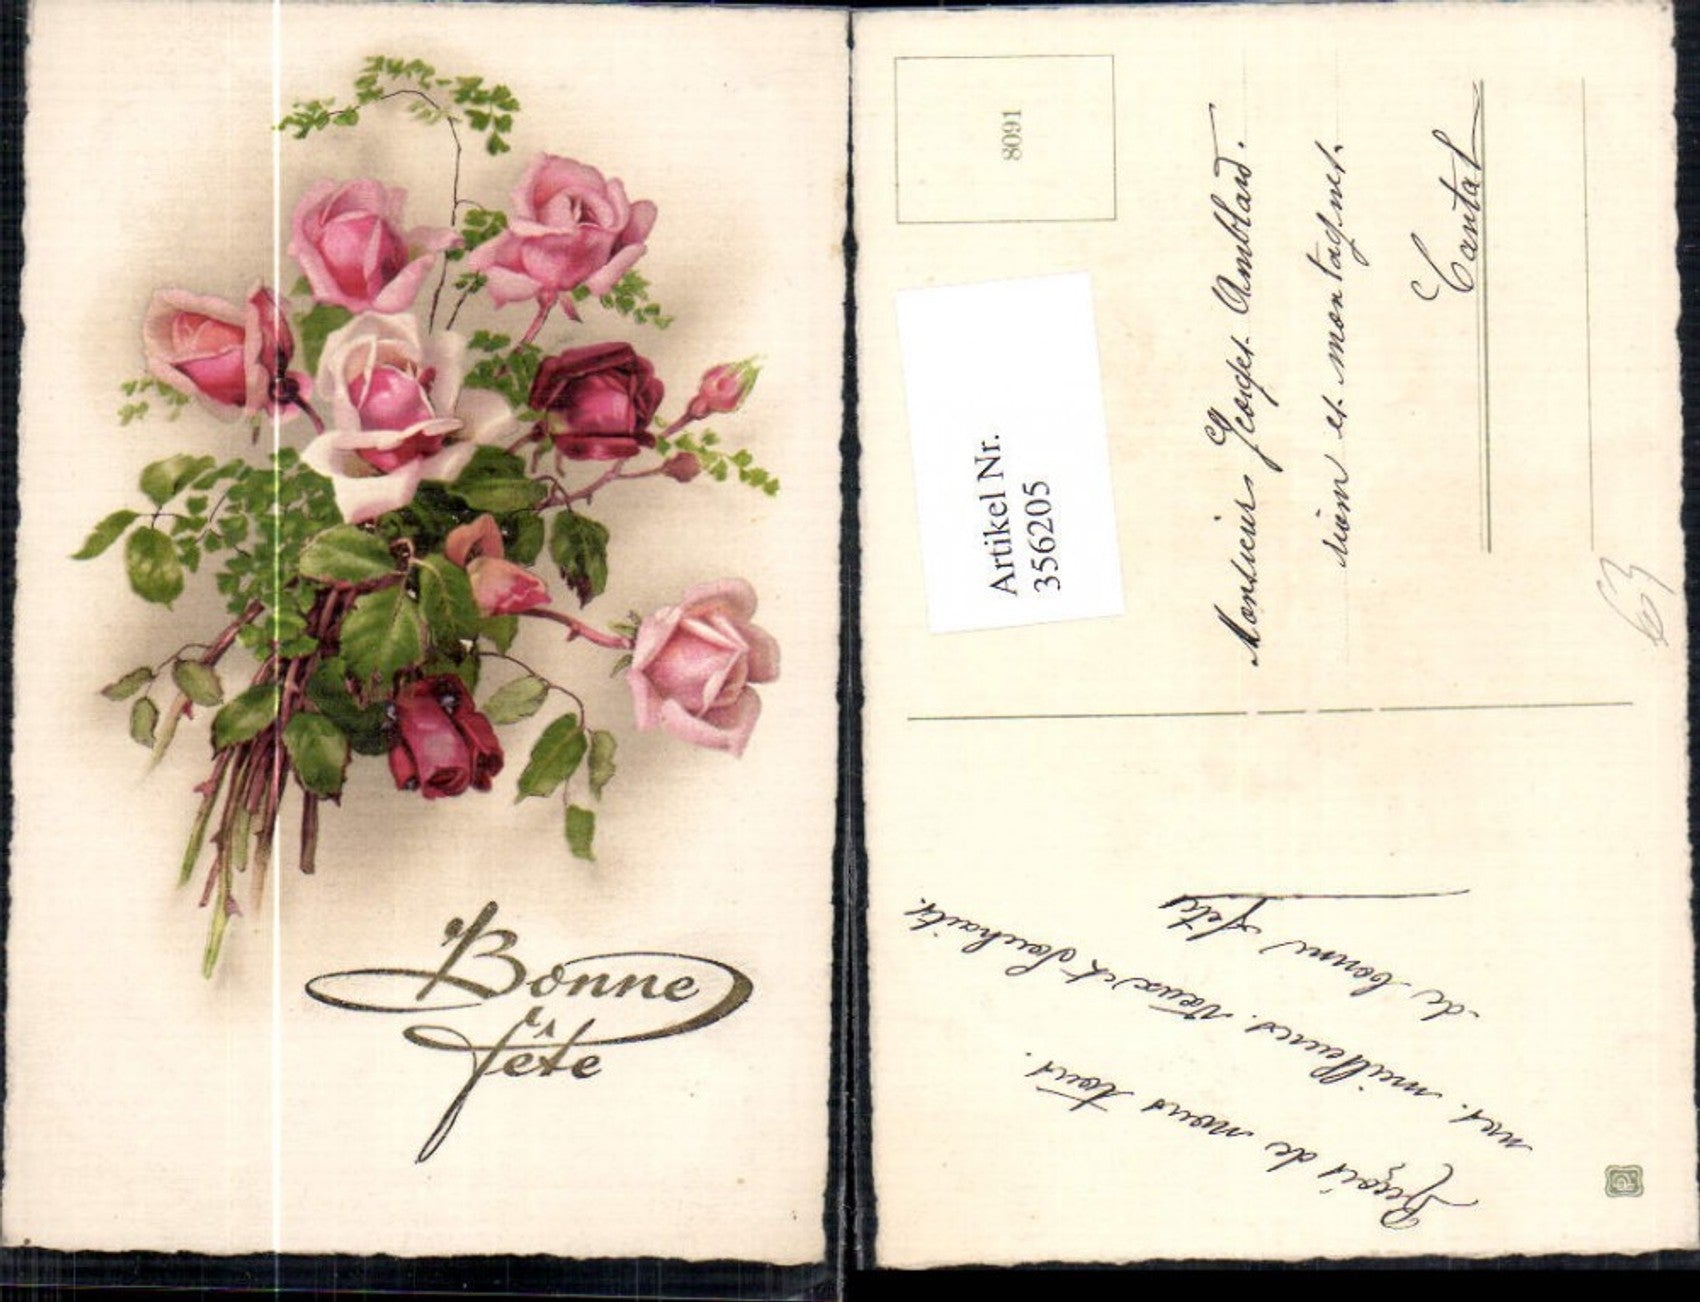 Bonne
fête
8091
Artikel Nr.
356205
Monsieur Georges Amblard.
riom es montagnes.
Cantal
63
Reçois de nous tous.
mes meilleures vœux et Souhaits.
de bonne fête